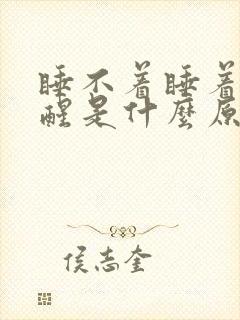 睡不着睡着
醒是什麼原
侯志奎